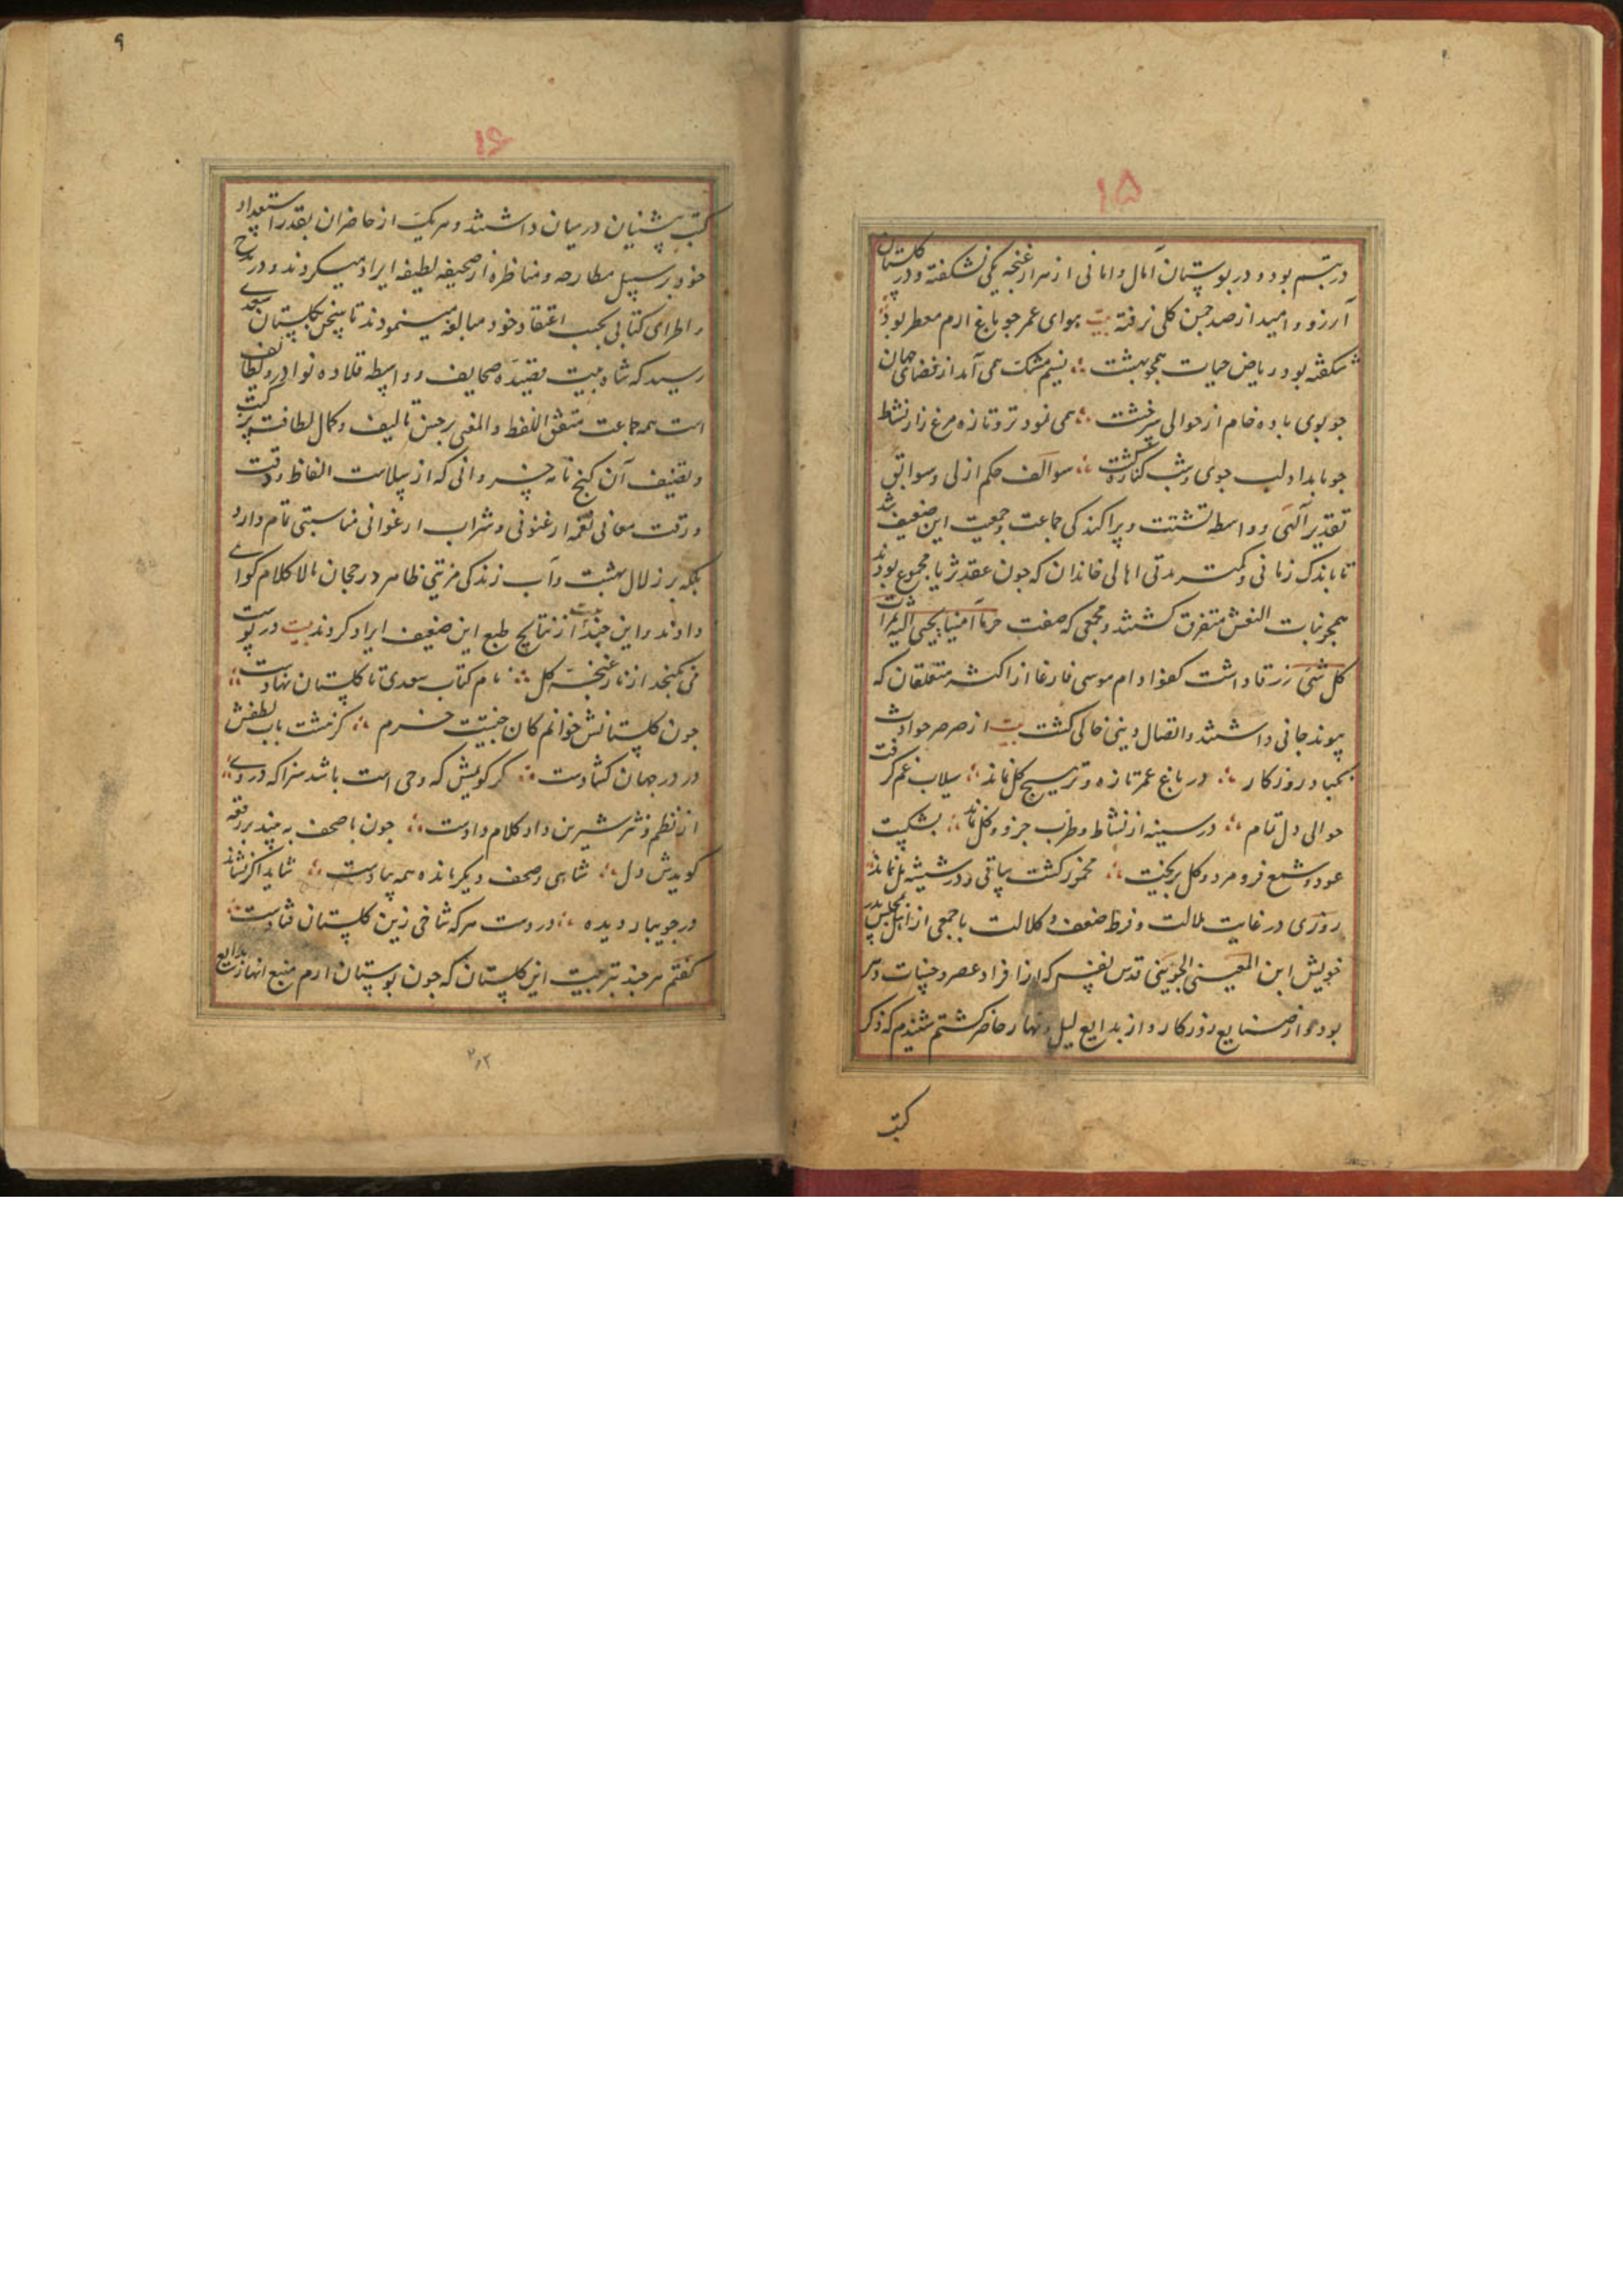 ۱۵
در تبسم بود و در بوستان آمال و امانی از هزار غنچه یکی نشکفته و در گلستان
آرزو و امید از صد چمن گلی نرفته بیت هوای عمر جو باغ ارم معطر بود
شکفته بود ریاض حیات همجو بهشت نسیم مشک همی آمد از فضای جهان
جو بوی باده خام از حوالی سرخشت همی نمود تر و تازه مرغزار نشاط
جو بامداد لب جوی و شب کناره کشت سوالف حکم ازلی و سوابق
تقدیر آلهی و واسطه تشتت و پراکندکی جماعت و جمعیت این ضعیف شد
تا باندک زمانی و کمتر مدتی اهالی خاندان که جون عقد ثریا مجموع بودند
همجو نبات النعش متفرق کشتند و مجمعی که صفت حرما آمنا یجبی الیه ثمرات
کل شی رزقا داشت کفؤاد ام موسی فارغا از اکثر متعلقان که
پیوند جانی داشتند و اتصال دینی خالی کشت بیت از صرصر حوادث
نکباء روزکار در باغ عمر تازه و تر هیچ کل نماند سیلاب غم کرفت
حوالی دل تمام در سینه از نشاط و طرب جزو و کل نماند بشکست
عود و شمع فرو مرد و کل بریخت مخمور کشت ساقی و در شیشه مل نماند
روزی در غایت ملالت و فرط ضعف و کلالت با جمعی از اهل مجلس پدر
خویش ابن المعینی الجوینی قدس نفسه که از افراد عصر و حسنات دهر
بود و از صنایع روزکار و از بدایع لیل و نهار حاضر کشتم شنیدم که ذکر
کتب
۹
۱۶
کتب پیشینیان در میان داشتند و هر یک از حاضران بقدر استعداد
خود بر سبیل مطارحه و مناظره از صحیفه لطیفه ایراد میکردند و در مدح
و اطرای کتابی بحسب اعتقاد خود مبالغه مینمودند تا سخن بکلستان سعدی
رسید که شاه بیت قصیده صحایف و واسطه قلاده نوادر و لطایف
است همه جماعت متفق اللفظ والمعنی بر حسن تالیف و کمال لطافت ترکیب
و تصنیف آن کنج نامه خسروانی که از سلاست الفاظ و دقت
و رقت معانی نغمه ارغنونی و شراب ارغوانی مناسبتی تمام دارد
بلکه بر زلال بهشت و آب زندکی مزیتی ظاهر و رجحان مالا کلام کواهی
دادند و این جند بیت از نتایج طبع این ضعیف ایراد کردند بیت در پوست
می نکنجد از ناز غنجه کل تا نام کتاب سعدی تا کلستان نهادست
جون کلستانش خوانم کان جنتیست خرم کز هشت باب لطفش
در در جهان کشادست کر کویمش که وحی است باشد سزا که در وی
از نظم و نثر شیرین داد کلام دادست جون با صحف به بیند بر رقعه
کویدش دل شاهی و صحف دیکر مانده همه پیادست شاید اکر نشاند
در جویبار دیده در دست هر که شاخی زین کلستان فتادست
کفتم هر جند بتربیت این کلستان که جون بوستان ارم منبع انهار بدایع